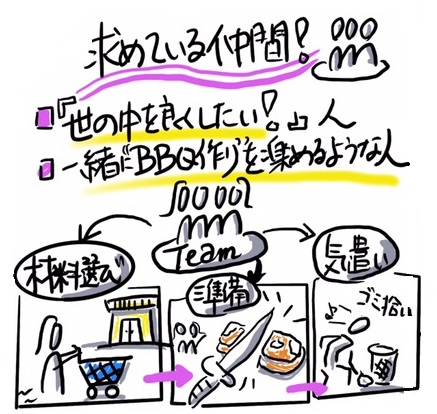 求めている仲間!
「世の中を良くしたい!」人
一緒にBBQ作りを楽めるような人
Team
材料選び
準備
気遣い
ゴミ拾い